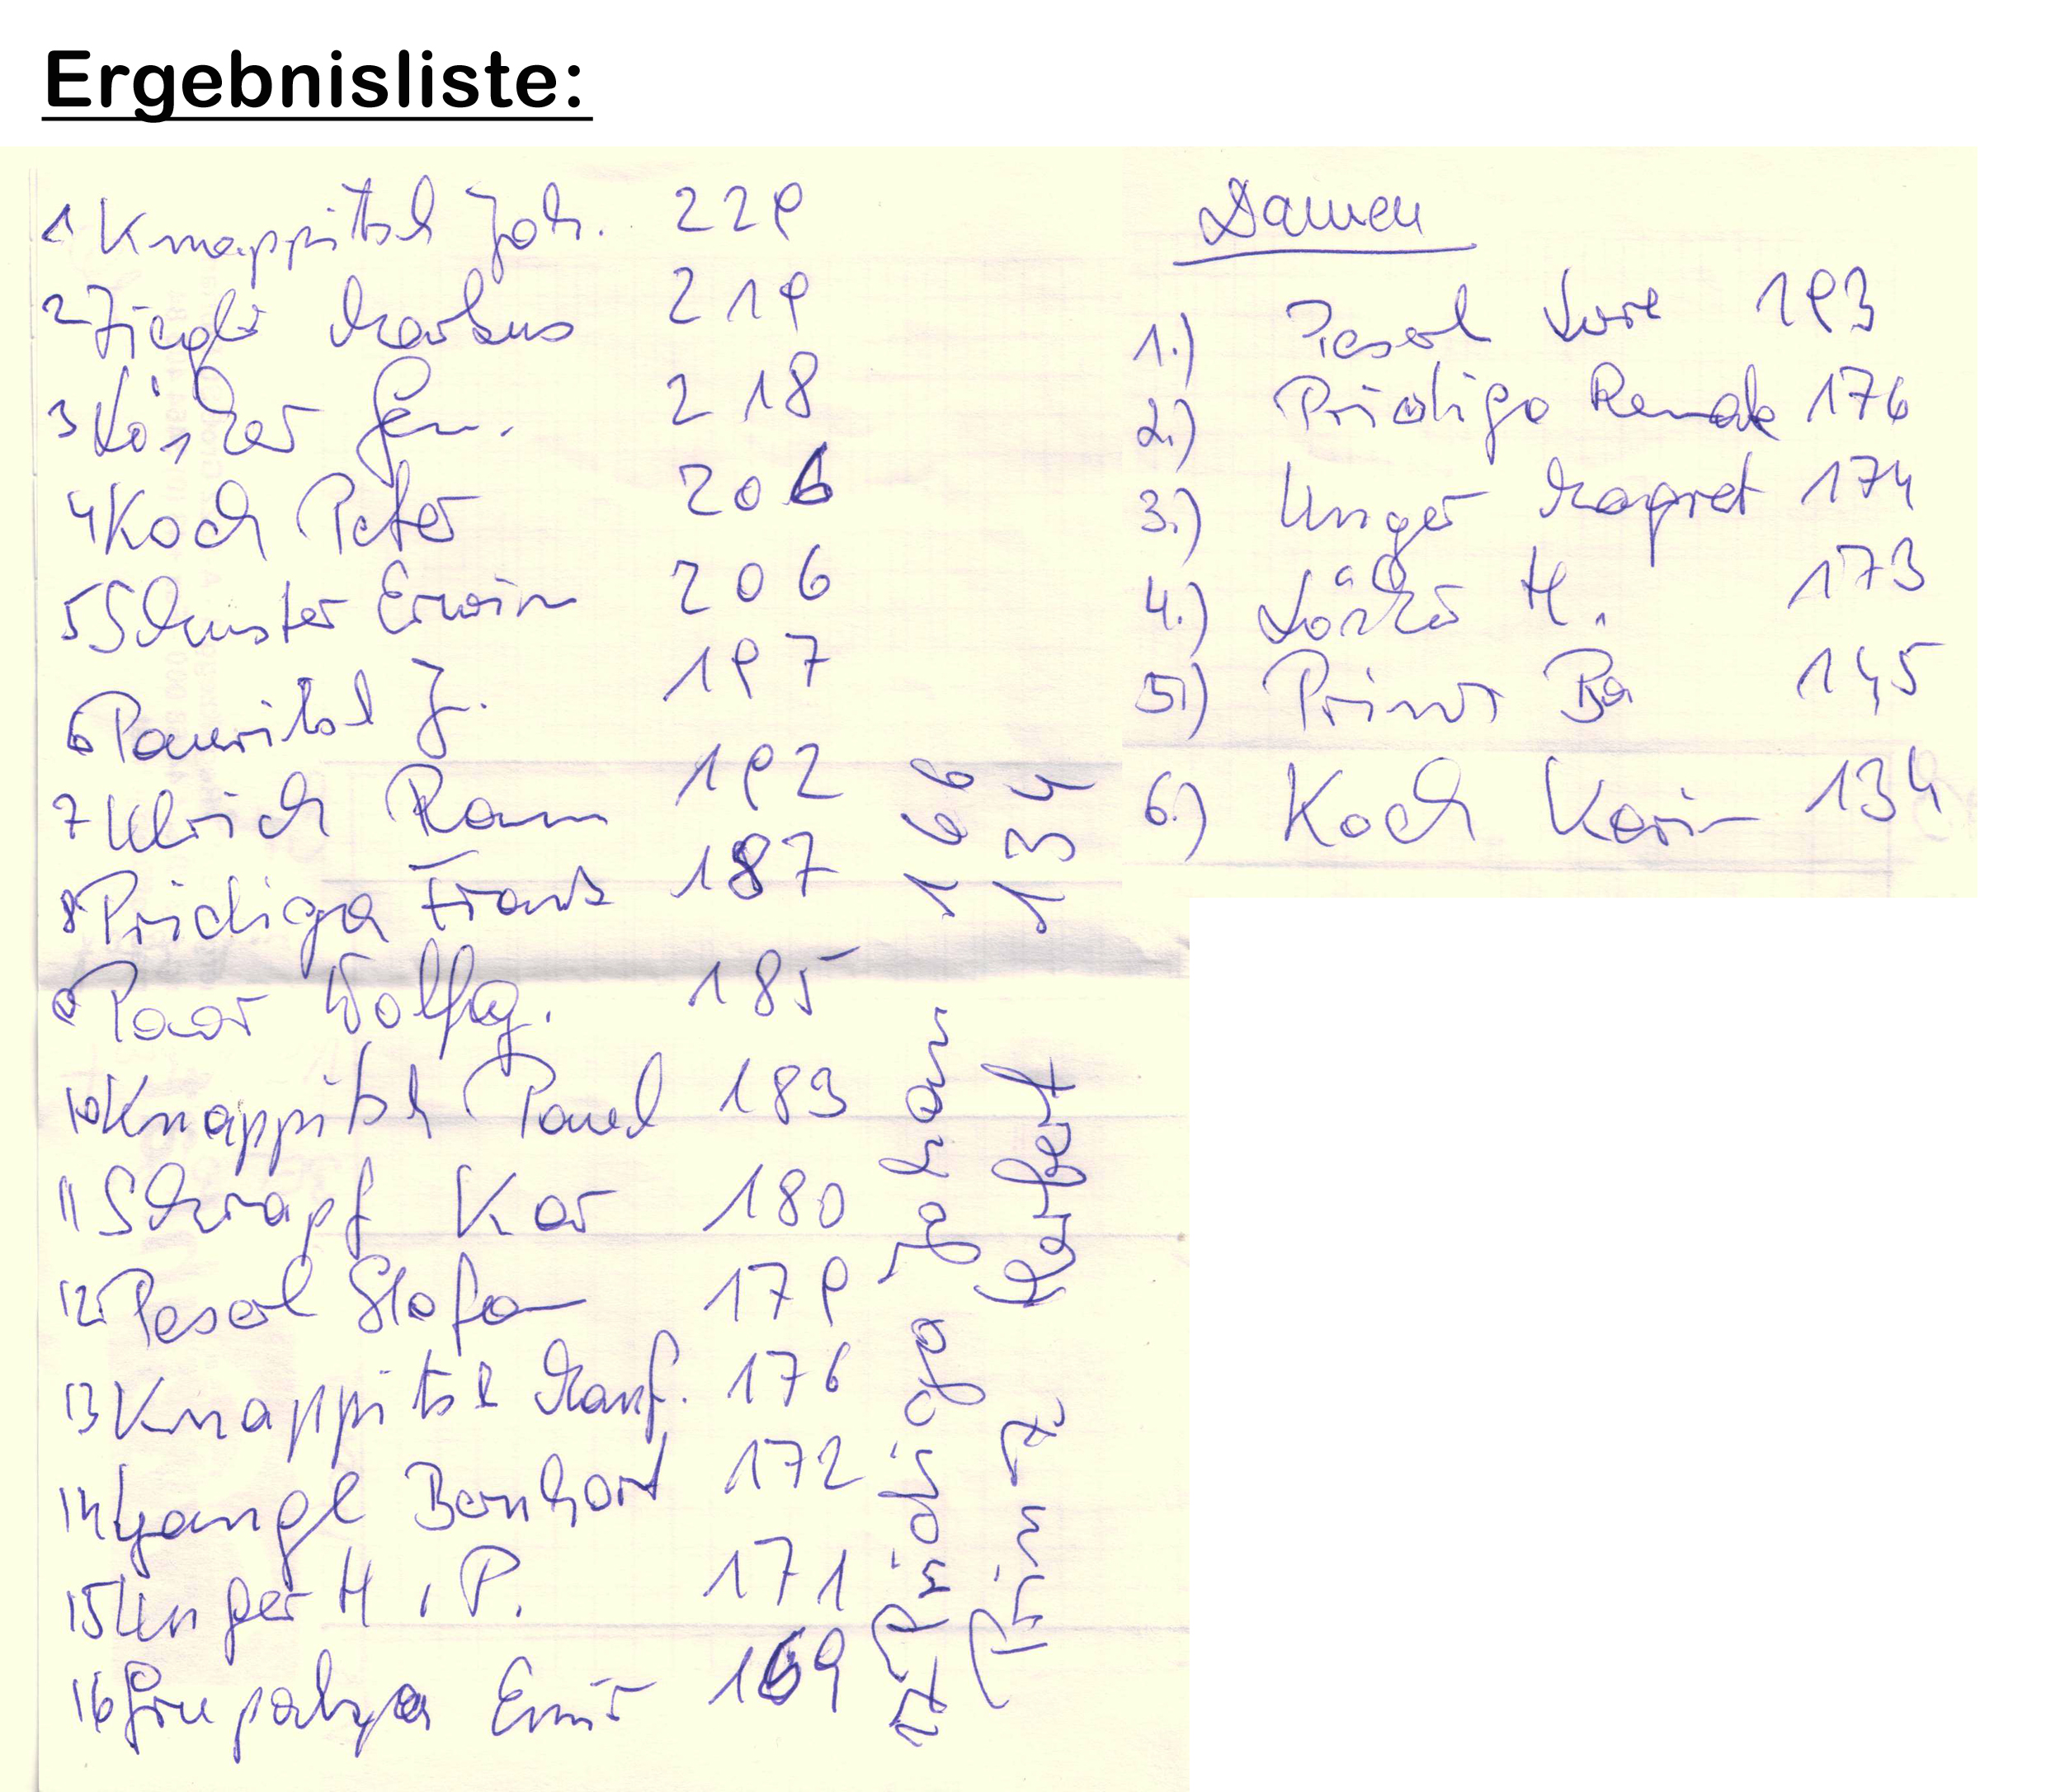 Ergebnisliste:
1 Knappitsch Joh. 229
2 Ziegler Markus 219
3 Löscher Jun. 218
4 Koch Peter 206
5 Schuster Erwin 206
6 Pauritsch J. 197
7 Ulrich Raum 192
8 Pridiga Frank 187
9 Paar Wolfg. 185
10 Knappitsch Paul 183
11 Schrapf Kar 180
12 Peserl Stefan 179
13 Knappitsch Manf. 176
14 Gangl Bernhard 172
15 Unger H. P. 171
16 169
17 Pridiga Johan 166
Prinz Herbert 134
Damen
1.) Peserl Lore 193
2.) Pridiga Renate 176
3.) Unger Magret 174
4.) Löscher H. 173
5.) Prinz Ba 145
6.) Koch Karin 134